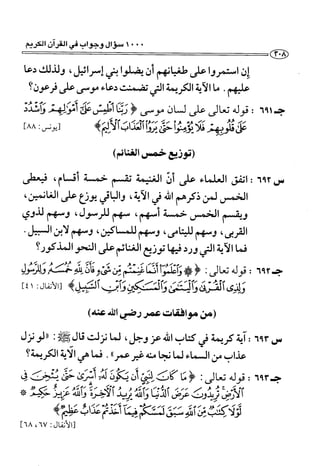 ١٠٠٠ سؤال وجواب في القرآن الكريم
٣٠٨
إن استمروا على طغيانهم أن يضلوا بني إسرائيل، ولذلك دعا
عليهم. ما الآية الكريمة التي تضمنت دعاء موسى على فرعون؟
جـ ٦٩١ : قوله تعالى على لسان موسى ﴿رَبَّنَا اطْمِسْ عَلَىٰ أَمْوَالِهِمْ وَاشْدُدْ
عَلَىٰ قُلُوبِهِمْ فَلَا يُؤْمِنُوا حَتَّىٰ يَرَوُا الْعَذَابَ الْأَلِيمَ﴾ [يونس: ٨٨]
(توزيع خمس الغنائم)
س ٦٩٢ : اتفق العلماء على أنّ الغنيمة تقسم خمسة أقسام، فيعطى
الخمس لمن ذكرهم الله في الآية، والباقي يوزع على الغانمين،
ويقسم الخمس خمسة أسهم، سهم للرسول، وسهم لذوي
القربى، وسهم لليتامى، وسهم للمساكين، وسهم لابن السبيل.
فما الآية التي ورد فيها توزيع الغنائم على النحو المذكور؟
جـ ٦٩٢ : قوله تعالى: ﴿۞ وَاعْلَمُوا أَنَّمَا غَنِمْتُمْ مِنْ شَيْءٍ فَأَنَّ لِلَّهِ خُمُسَهُ وَلِلرَّسُولِ
وَلِذِي الْقُرْبَىٰ وَالْيَتَامَىٰ وَالْمَسَاكِينِ وَابْنِ السَّبِيلِ﴾ [الأنفال: ٤١]
(من موافقات عمر رضي الله عنه)
س ٦٩٣ : آية كريمة في كتاب الله عز وجل، لما نزلت قال ﷺ: «لو نزل
عذاب من السماء لما نجا منه غير عمر». فما هي الآية الكريمة؟
جـ ٦٩٣ : قوله تعالى: ﴿مَا كَانَ لِنَبِيٍّ أَنْ يَكُونَ لَهُ أَسْرَىٰ حَتَّىٰ يُثْخِنَ فِي
الْأَرْضِ تُرِيدُونَ عَرَضَ الدُّنْيَا وَاللَّهُ يُرِيدُ الْآخِرَةَ وَاللَّهُ عَزِيزٌ حَكِيمٌ *
لَوْلَا كِتَابٌ مِنَ اللَّهِ سَبَقَ لَمَسَّكُمْ فِيمَا أَخَذْتُمْ عَذَابٌ عَظِيمٌ﴾
[الأنفال: ٦٧، ٦٨]